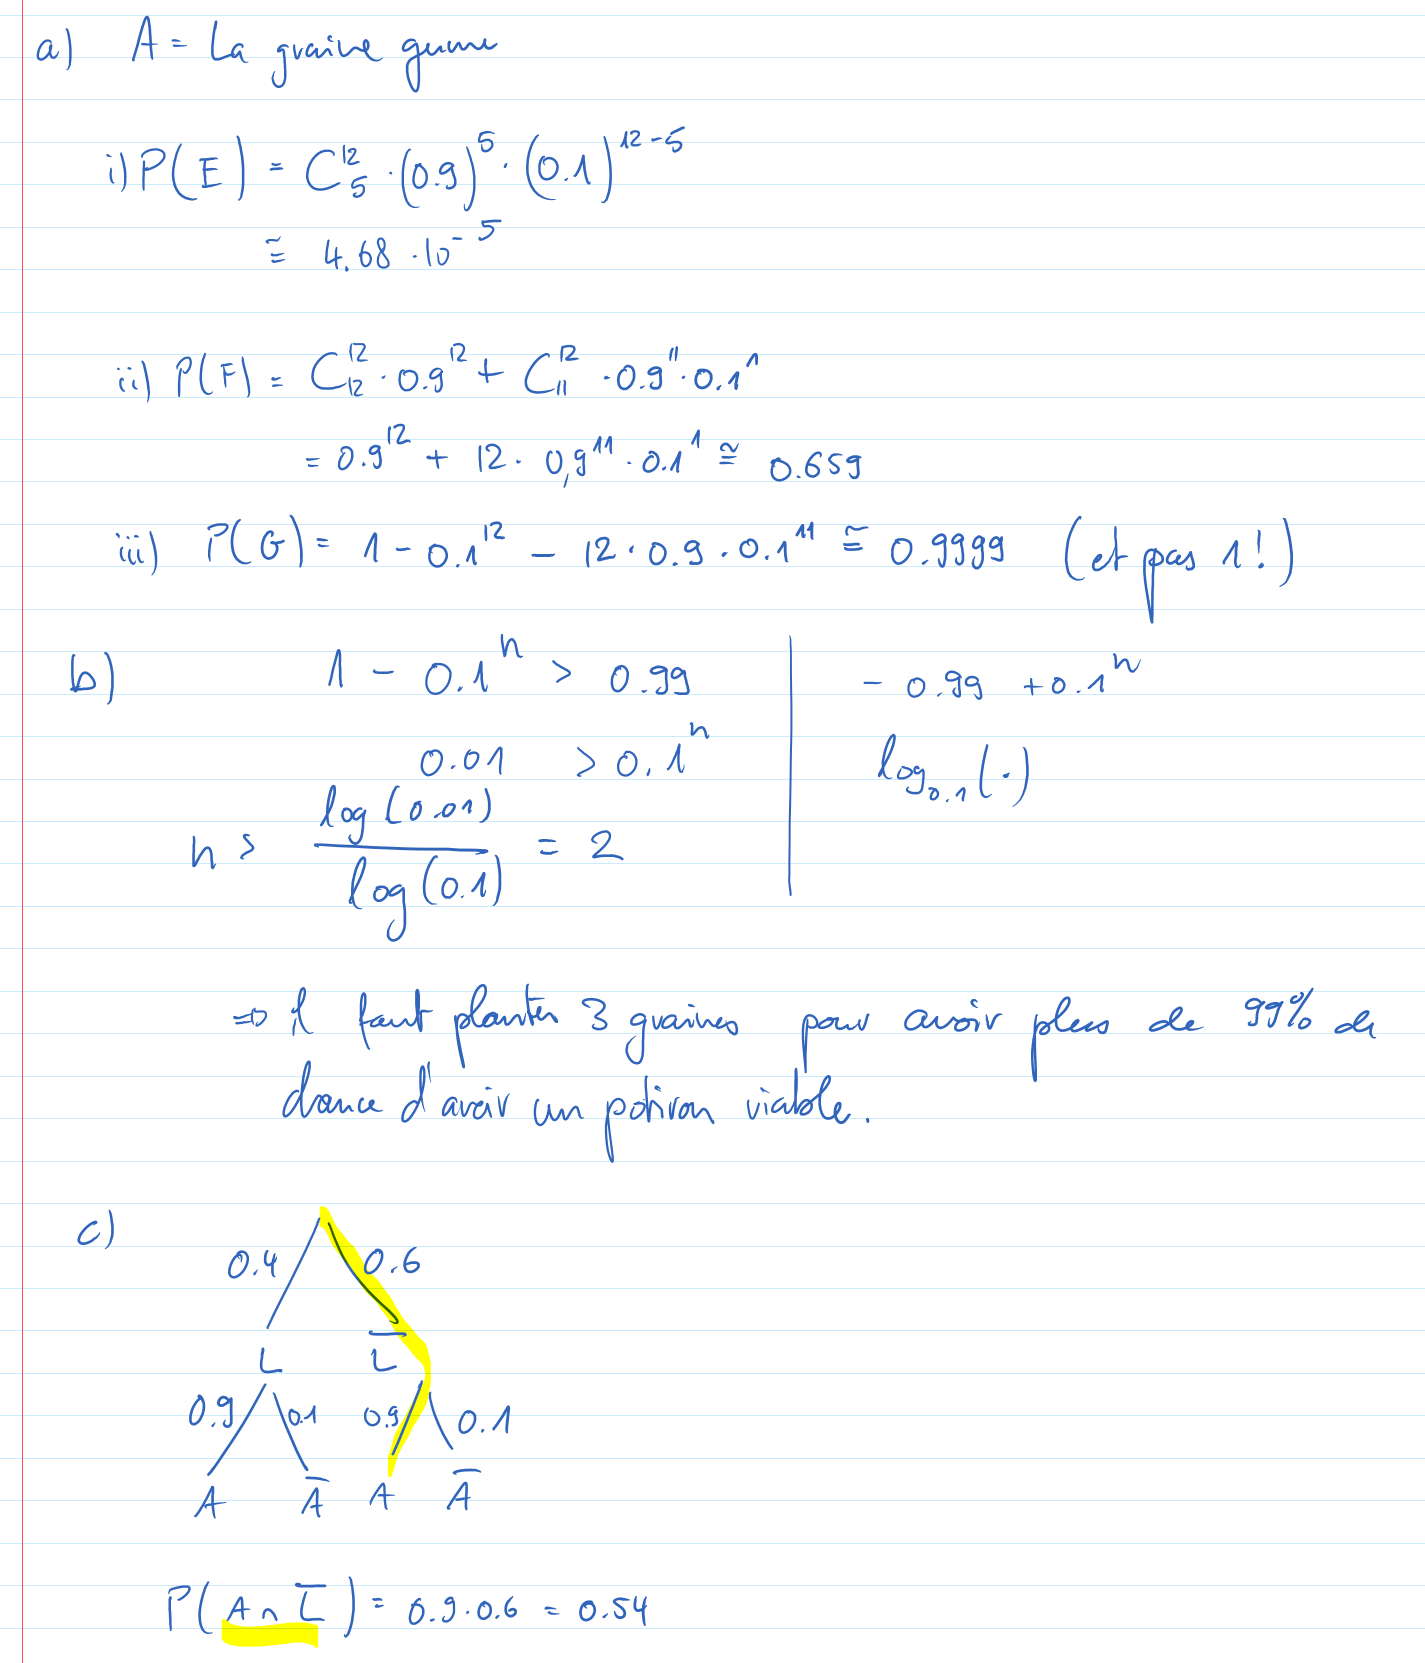 a) A = La graine germe
i) P(E) = C¹²₅ · (0.9)⁵ · (0.1)¹²⁻⁵
≅ 4.68 · 10⁻⁵
ii) P(F) = C¹²₁₂ · 0.9¹² + C¹²₁₁ · 0.9¹¹ · 0.1¹
= 0.9¹² + 12 · 0,9¹¹ · 0.1¹ ≅ 0.659
iii) P(G) = 1 - 0.1¹² - 12 · 0.9 · 0.1¹¹ ≅ 0.9999 (et pas 1!)
b) 1 - 0.1ⁿ > 0.99 | - 0.99 + 0.1ⁿ
0.01 > 0.1ⁿ | log₀.₁(·)
n > log(0.01) / log(0.1) = 2
⇒ il faut planter 3 graines pour avoir plus de 99% de
chance d'avoir un potiron viable.
c)
0.4 0.6
L L̅
0.9 0.1 0.9 0.1
A A̅ A A̅
P(A ∩ L̅) = 0.9 · 0.6 = 0.54